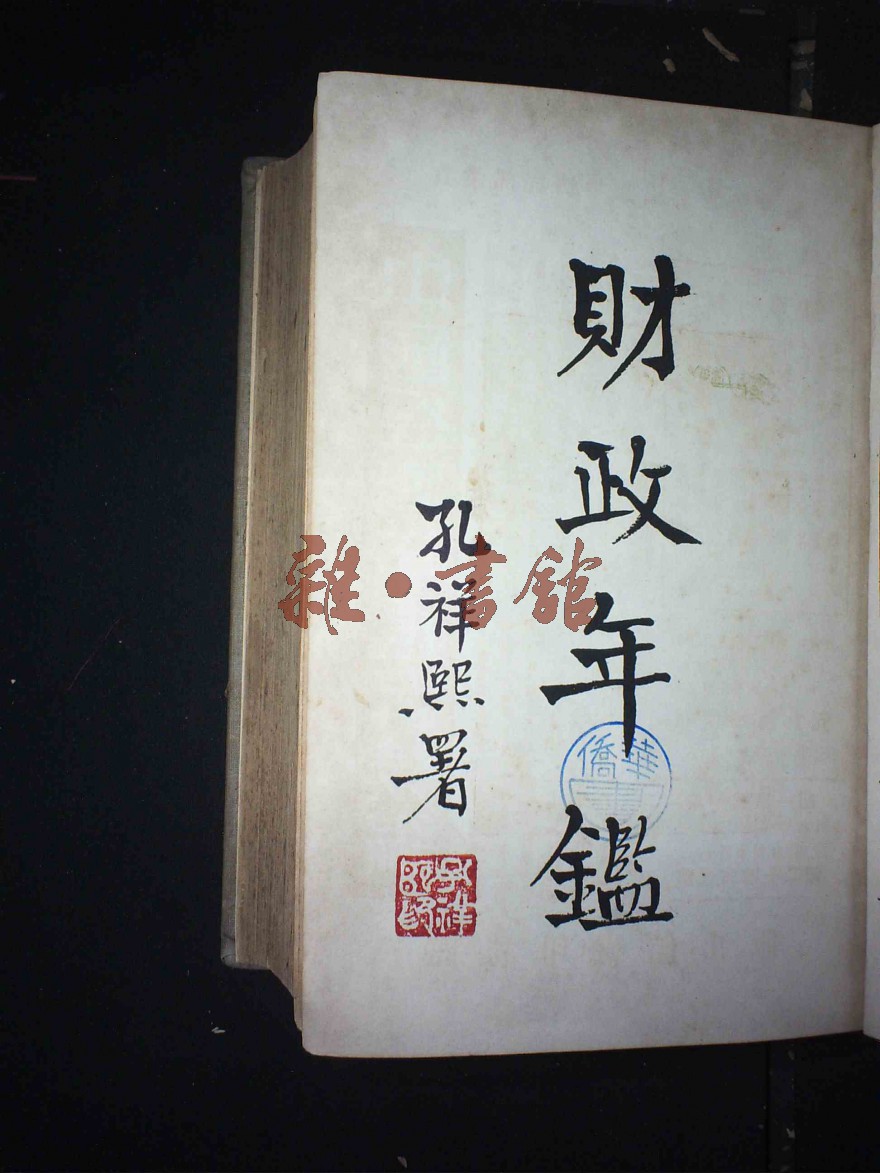 財政年鑑
孔祥熙署
孔祥熙印
雜·書館
華僑